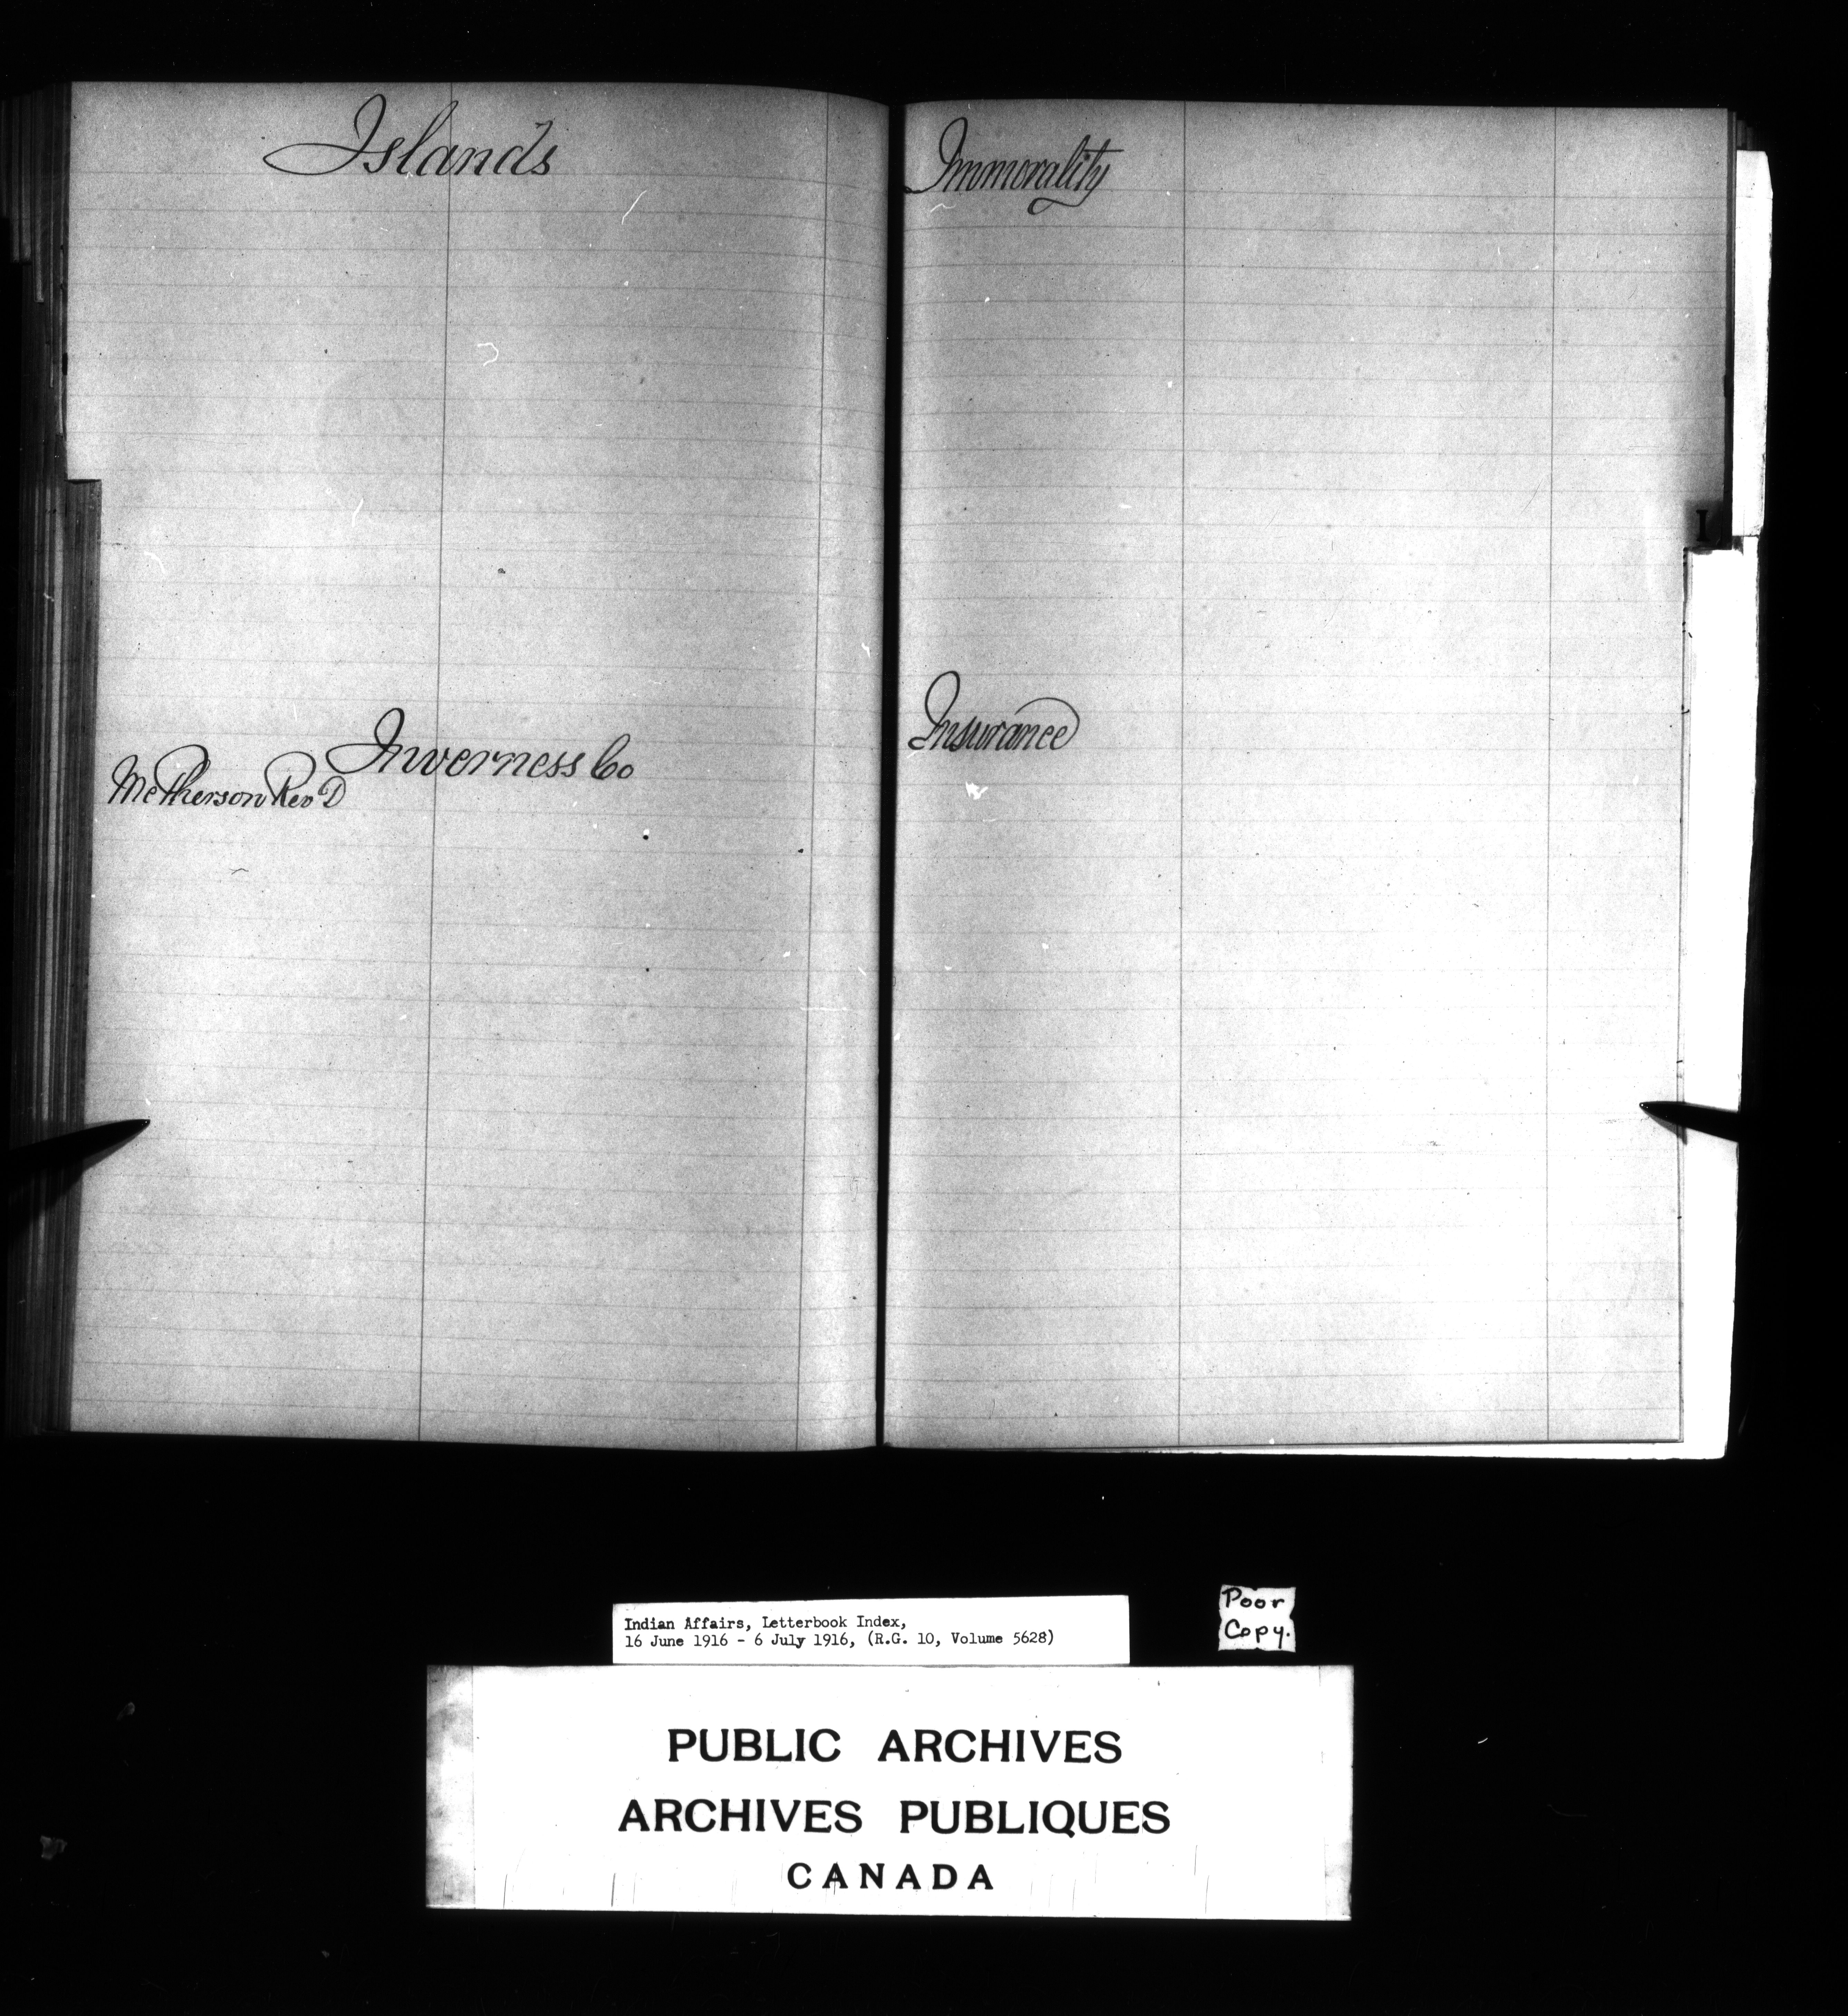 Islands
Inverness Co
McPherson Rev D
Immorality
Insurance
I
Indian Affairs, Letterbook Index,
16 June 1916 - 6 July 1916, (R.G. 10, Volume 5628)
Poor
Copy.
PUBLIC ARCHIVES
ARCHIVES PUBLIQUES
CANADA